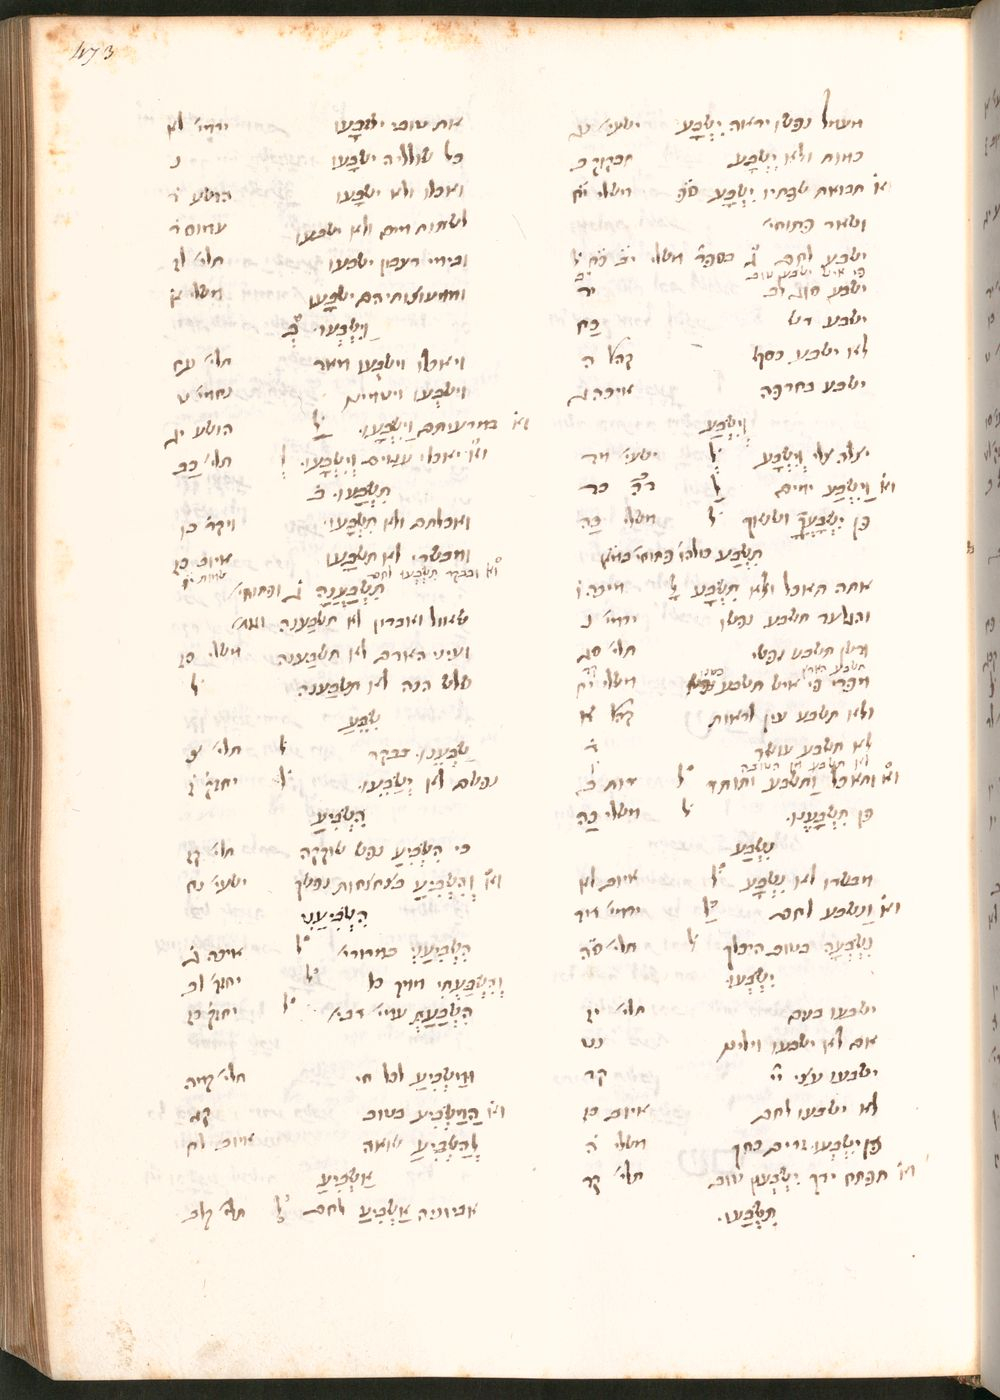 473
מעמל נפשו יראה יִשְׂבָּע ישעי׳ נג
כמות ולא יִשְׂבָּע חבקוק ב
וא׳ תבואת שפתיו יִשְׂבָּע ס״פ משלי יח
ושאר פתוחי׳
ישבע לחם ג׳ בספר משלי יב כח
פי איש ישבע טוב יב
ישבע סוג לב יד
ישבע ריש כח
לא ישבע כסף קהל ה
ישבע בחרפה איכה ג
וְיִשְׂבַּע
יצלה צלי וְיִשְׂבָּע ל׳ ישעי׳ מד
וא׳ וַיִּשְׂבַּע ימים ל׳ ד״ה כד
פן יִשְׂבָּעֲךָ ושנאך ל׳ משלי כה
תִשְׂבַּע כולהו פתוחי׳ במ״א
אתה תאכל ולא תִשְׂבָּע ל׳ מיכה ו
והגלעד תשבע נפשו ירמי׳ נ
ודשן תשבע נפשי תלי׳ סג
תשבע הארץ קד
מפרי פי איש תשבע בטנו משלי יח
ולא תשבע עין לראות קהל א
לא תשבע עושר ד
לא תשבע מן הטובה ו
וא׳ ותאכל וַתִּשְׂבַּע ותותר ל׳ רות ב
פן תִּשְׂבָּעֶנּוּ ל׳ משלי כה
נִשְׂבַּע
מבשרו לא נִשְׂבָּע ל׳ איוב לא
וא׳ וַנִּשְׂבַּע לחם ל׳ ירמי׳ מד
נִשְׂבְּעָה בטוב ביתך ל׳ תלי׳ סה
יִשְׂבְּעוּ
ישבעו בנים תלי׳ יז
אם לא ישבעו וילינו נט
ישבעו עצי יי׳ קד
לא ישבעו לחם איוב כז
פן יִשְׂבְּעוּ זרים כחך משלי ה
וא׳ תפתח ידך יִשְׂבְּעוּן טוב תלי׳ קד
תִשְׂבַּעוּ
את טובי יִשְׂבָּעוּ ירמי׳ לא
כל שולליה ישבָּעו נ
ואכלו ולא ישבָּעו הושע ד
לשתות מים ולא ישבעו עמוס ד
ובימי רעבון ישבעו תלי׳ לז
וממועצותיהם ישבָּעו משלי א
וַיִּשְׂבְּעוּ ב׳
ויאכלו וישבעו מאד תלי׳ עח
וישבְּעו וישמינו נחמי׳ ט
וא׳ כמרעיתם וַיִּשְׂבָּעוּ ל׳ הושע יג
וא׳ יאכלו ענוים וְיִשְׂבָּעוּ ל׳ תלי׳ כב
תִשְׂבַּעוּ ב׳
ואכלתם ולא תִשְׂבָּעוּ ויקר׳ כו
ומבשרי לא תשבָּעו איוב יט
וא׳ ובבקר תִּשְׂבְּעוּ לחם שמות יו
תִשְׂבַּעְנָה ג׳ ופתוחי׳
שאול ואבדון לא תשבַּענה
ועיני האדם לא תשבַּענה משלי כז
שלש הנה לא תשבַּענה ל
שִׂבֵּעַ
שַׂבְּעֵנוּ בבקר ל׳ תלי׳ צ
נפשם לא יְשַׂבֵּעוּ ל׳ יחזק׳ ז
הִשְׂבִּיעַ
כי הִשְׂבִּיעַ נפש שוקקה תלי׳ קז
וא׳ וְהִשְׂבִּיעַ בצחצחות נפשך ישעי׳ נח
הִשְׂבִּיעַנִי
הִשְׂבִּיעַנִי במרורי׳ ל׳ איכה ג
וְהִשְׂבַּעְתִּי ממך כל ל׳ יחזק׳ לב
הִשְׂבַּעַתְּ עמי׳ רבי׳ ל׳ יחזק׳ כז
וּמַשְׂבִּיעַ לכל חי תלי׳ קמה
וא׳ הַמַשְׂבִּיעַ בטוב קג
לְהַשְׂבִּיעַ שואה איוב לח
אַשְׂבִּיעַ
אביוניה אַשְׂבִּיעַ לחם ל׳ תלי׳ קלב